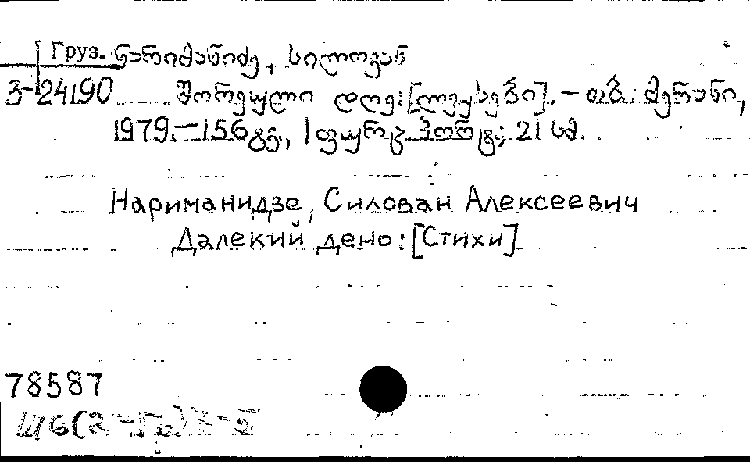 Груз. ნარიმანიძე, სილოვან
3-24190 შორეული დღე: [ლექსები]. – თბ.: მერანი,
1979. – 156 გვ., 1 ფურც. პორტ.; 21 სმ.
Нариманидзе, Силован Алексеевич
Далекий дено: [Стихи]
78587